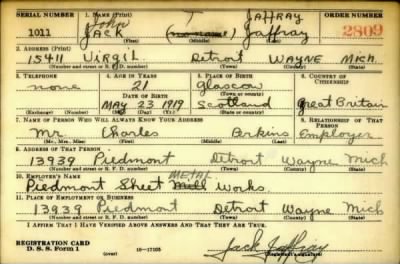 SERIAL NUMBER 1. NAME (Print) ORDER NUMBER
John T JAFFRAY
1011 JACK (no name) Jaffray 2809
(First) (Middle) (Last)
2. ADDRESS (Print)
15411 VIRGIL Detroit WAYNE MICH.
(Number and street or R. F. D. number) (Town) (County) (State)
3. TELEPHONE 4. AGE IN YEARS 5. PLACE OF BIRTH 6. COUNTRY OF CITIZENSHIP
none 21 Glascow
DATE OF BIRTH (Town or county)
MAY 23 1919 Scotland Great Britain
(Exchange) (Number) (Mo.) (Day) (Yr.) (State or country)
7. NAME OF PERSON WHO WILL ALWAYS KNOW YOUR ADDRESS 8. RELATIONSHIP OF THAT PERSON
Mr. Charles Perkins Employer
(Mr., Mrs., Miss) (First) (Middle) (Last)
9. ADDRESS OF THAT PERSON
13939 Piedmont Detroit Wayne Mich
(Number and street or R. F. D. number) (Town) (County) (State)
10. EMPLOYER'S NAME
METAL
Piedmont Sheet Mill Works.
11. PLACE OF EMPLOYMENT OR BUSINESS
13939 Piedmont Detroit Wayne Mich
(Number and street or R. F. D. number) (Town) (County) (State)
I AFFIRM THAT I HAVE VERIFIED ABOVE ANSWERS AND THAT THEY ARE TRUE.
REGISTRATION CARD
D. S. S. Form 1 (over) 16-17105 Jack Jaffray
(Registrant's signature)